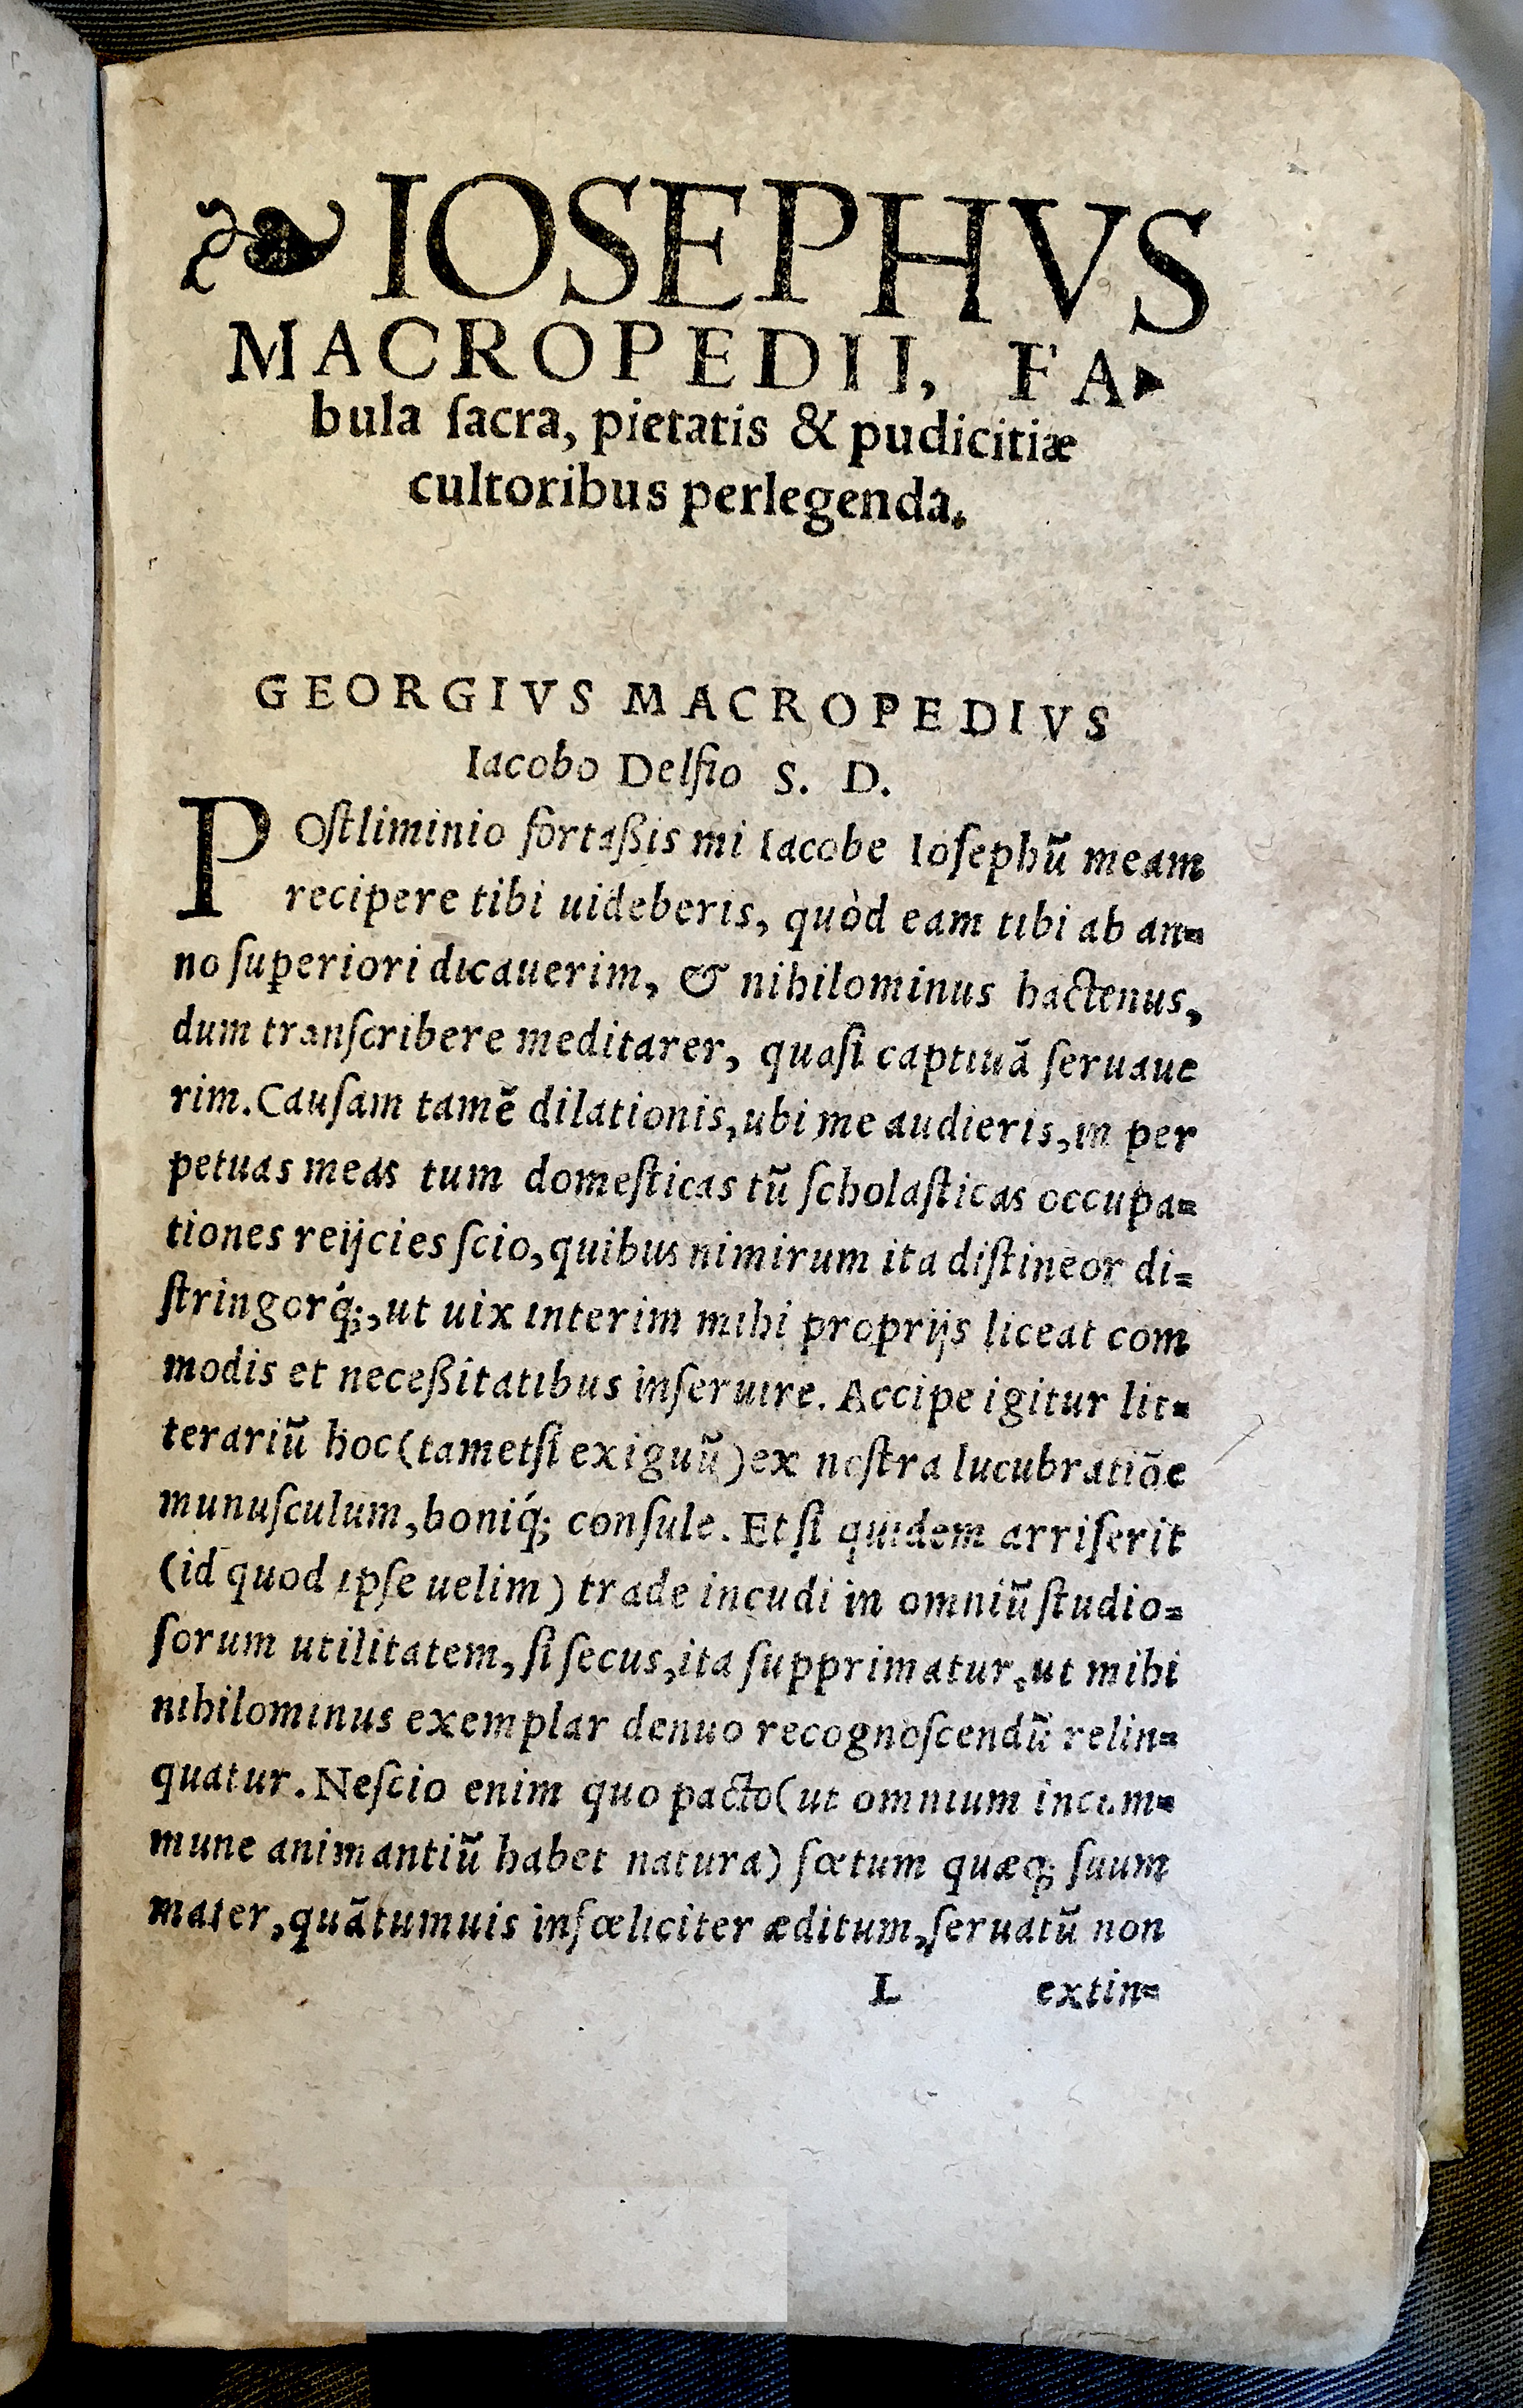 ❧ IOSEPHVS
MACROPEDII, FA-
bula ſacra, pietatis & pudicitiæ
cultoribus perlegenda.
GEORGIVS MACROPEDIVS
Iacobo Delfio S. D.
POſtliminio fortaßis mi Iacobe Ioſephū meam
recipere tibi uideberis, quòd eam tibi ab an=
no ſuperiori dicauerim, & nihilominus hactenus,
dum tranſcribere meditarer, quaſi captiuā ſeruaue
rim. Cauſam tamē dilationis, ubi me audieris, in per
petuas meas tum domeſticas tū ſcholaſticas occupa=
tiones reijcies ſcio, quibus nimirum ita diſtineor di=
ſtringorq́;, ut uix interim mihi proprijs liceat com
modis et neceßitatibus inſeruire. Accipe igitur lit=
terariū hoc (tametſi exiguū) ex noſtra lucubratiōe
munuſculum, boniq́; conſule. Et ſi quidem arriſerit
(id quod ipſe uelim) trade incudi in omniū ſtudio=
ſorum utilitatem, ſi ſecus, ita ſupprimatur, ut mihi
nihilominus exemplar denuo recognoſcendū relin=
quatur. Neſcio enim quo pacto (ut omnium incom=
mune animantiū habet natura) fœtum quæq; ſuum
mater, quātumuis infœliciter æditum, ſeruatū non
L extin=